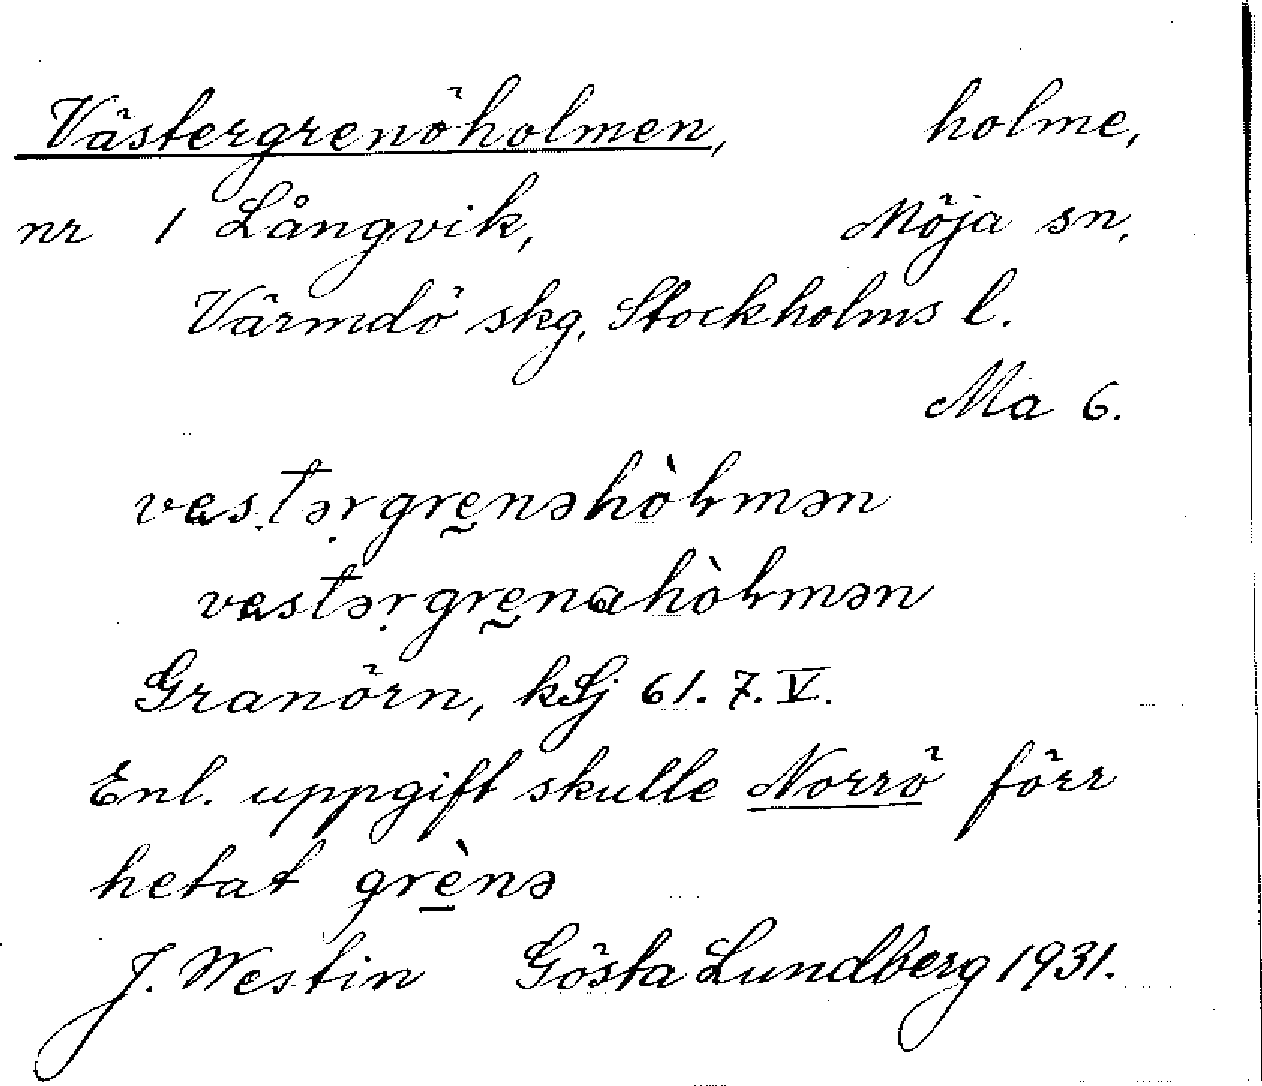 Västergrenöholmen, holme,
nr 1 Långvik, Möja sn,
Värmdö skg, Stockholms l.
Ma 6.
vastərgrenəhòłmən
vastərgrenahòłmən
Granörn, kSj 61. 7. V.
Enl. uppgift skulle Norrö förr
hetat grènə
J. Westin Gösta Lundberg 1931.